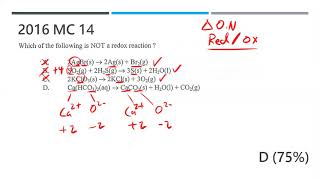 2016 MC 14
Δ O.N
Red / OX
Which of the following is NOT a redox reaction ?
2AgBr(s) → 2Ag(s) + Br₂(g) ✓
+4 SO₂(g) + 2H₂S(g) → 3S(s) + 2H₂O(l) ✓
2KClO₃(s) → 2KCl(s) + 3O₂(g) ✓
D. Ca(HCO₃)₂(aq) → CaCO₃(s) + H₂O(l) + CO₂(g)
Ca²⁺ O²⁻ Ca²⁺ O²⁻
+2 -2 +2 -2
D (75%)